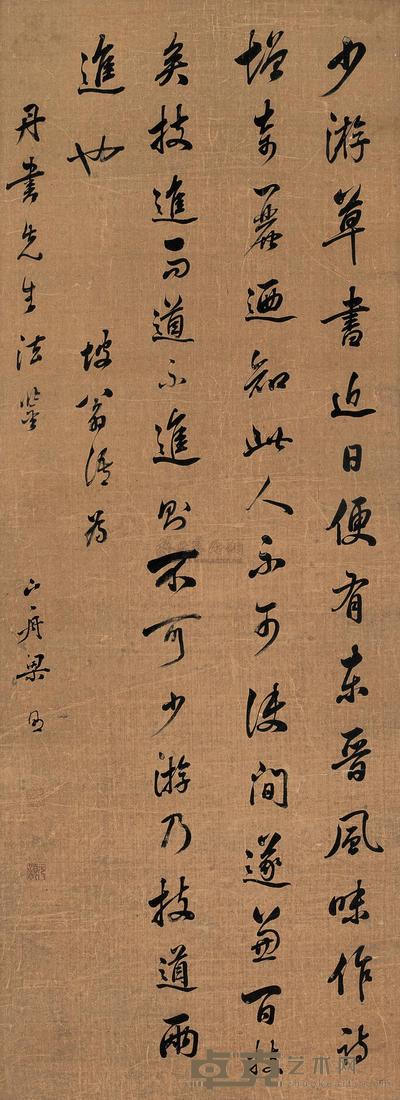 少游草書近日便有東晉風味作詩
增奇麗迺知此人不可使閒遂兼百技
矣技進而道不進則不可少游乃技道兩
進也 坡翁語為
丹書先生法鑒 山舟梁同
卓克艺术网